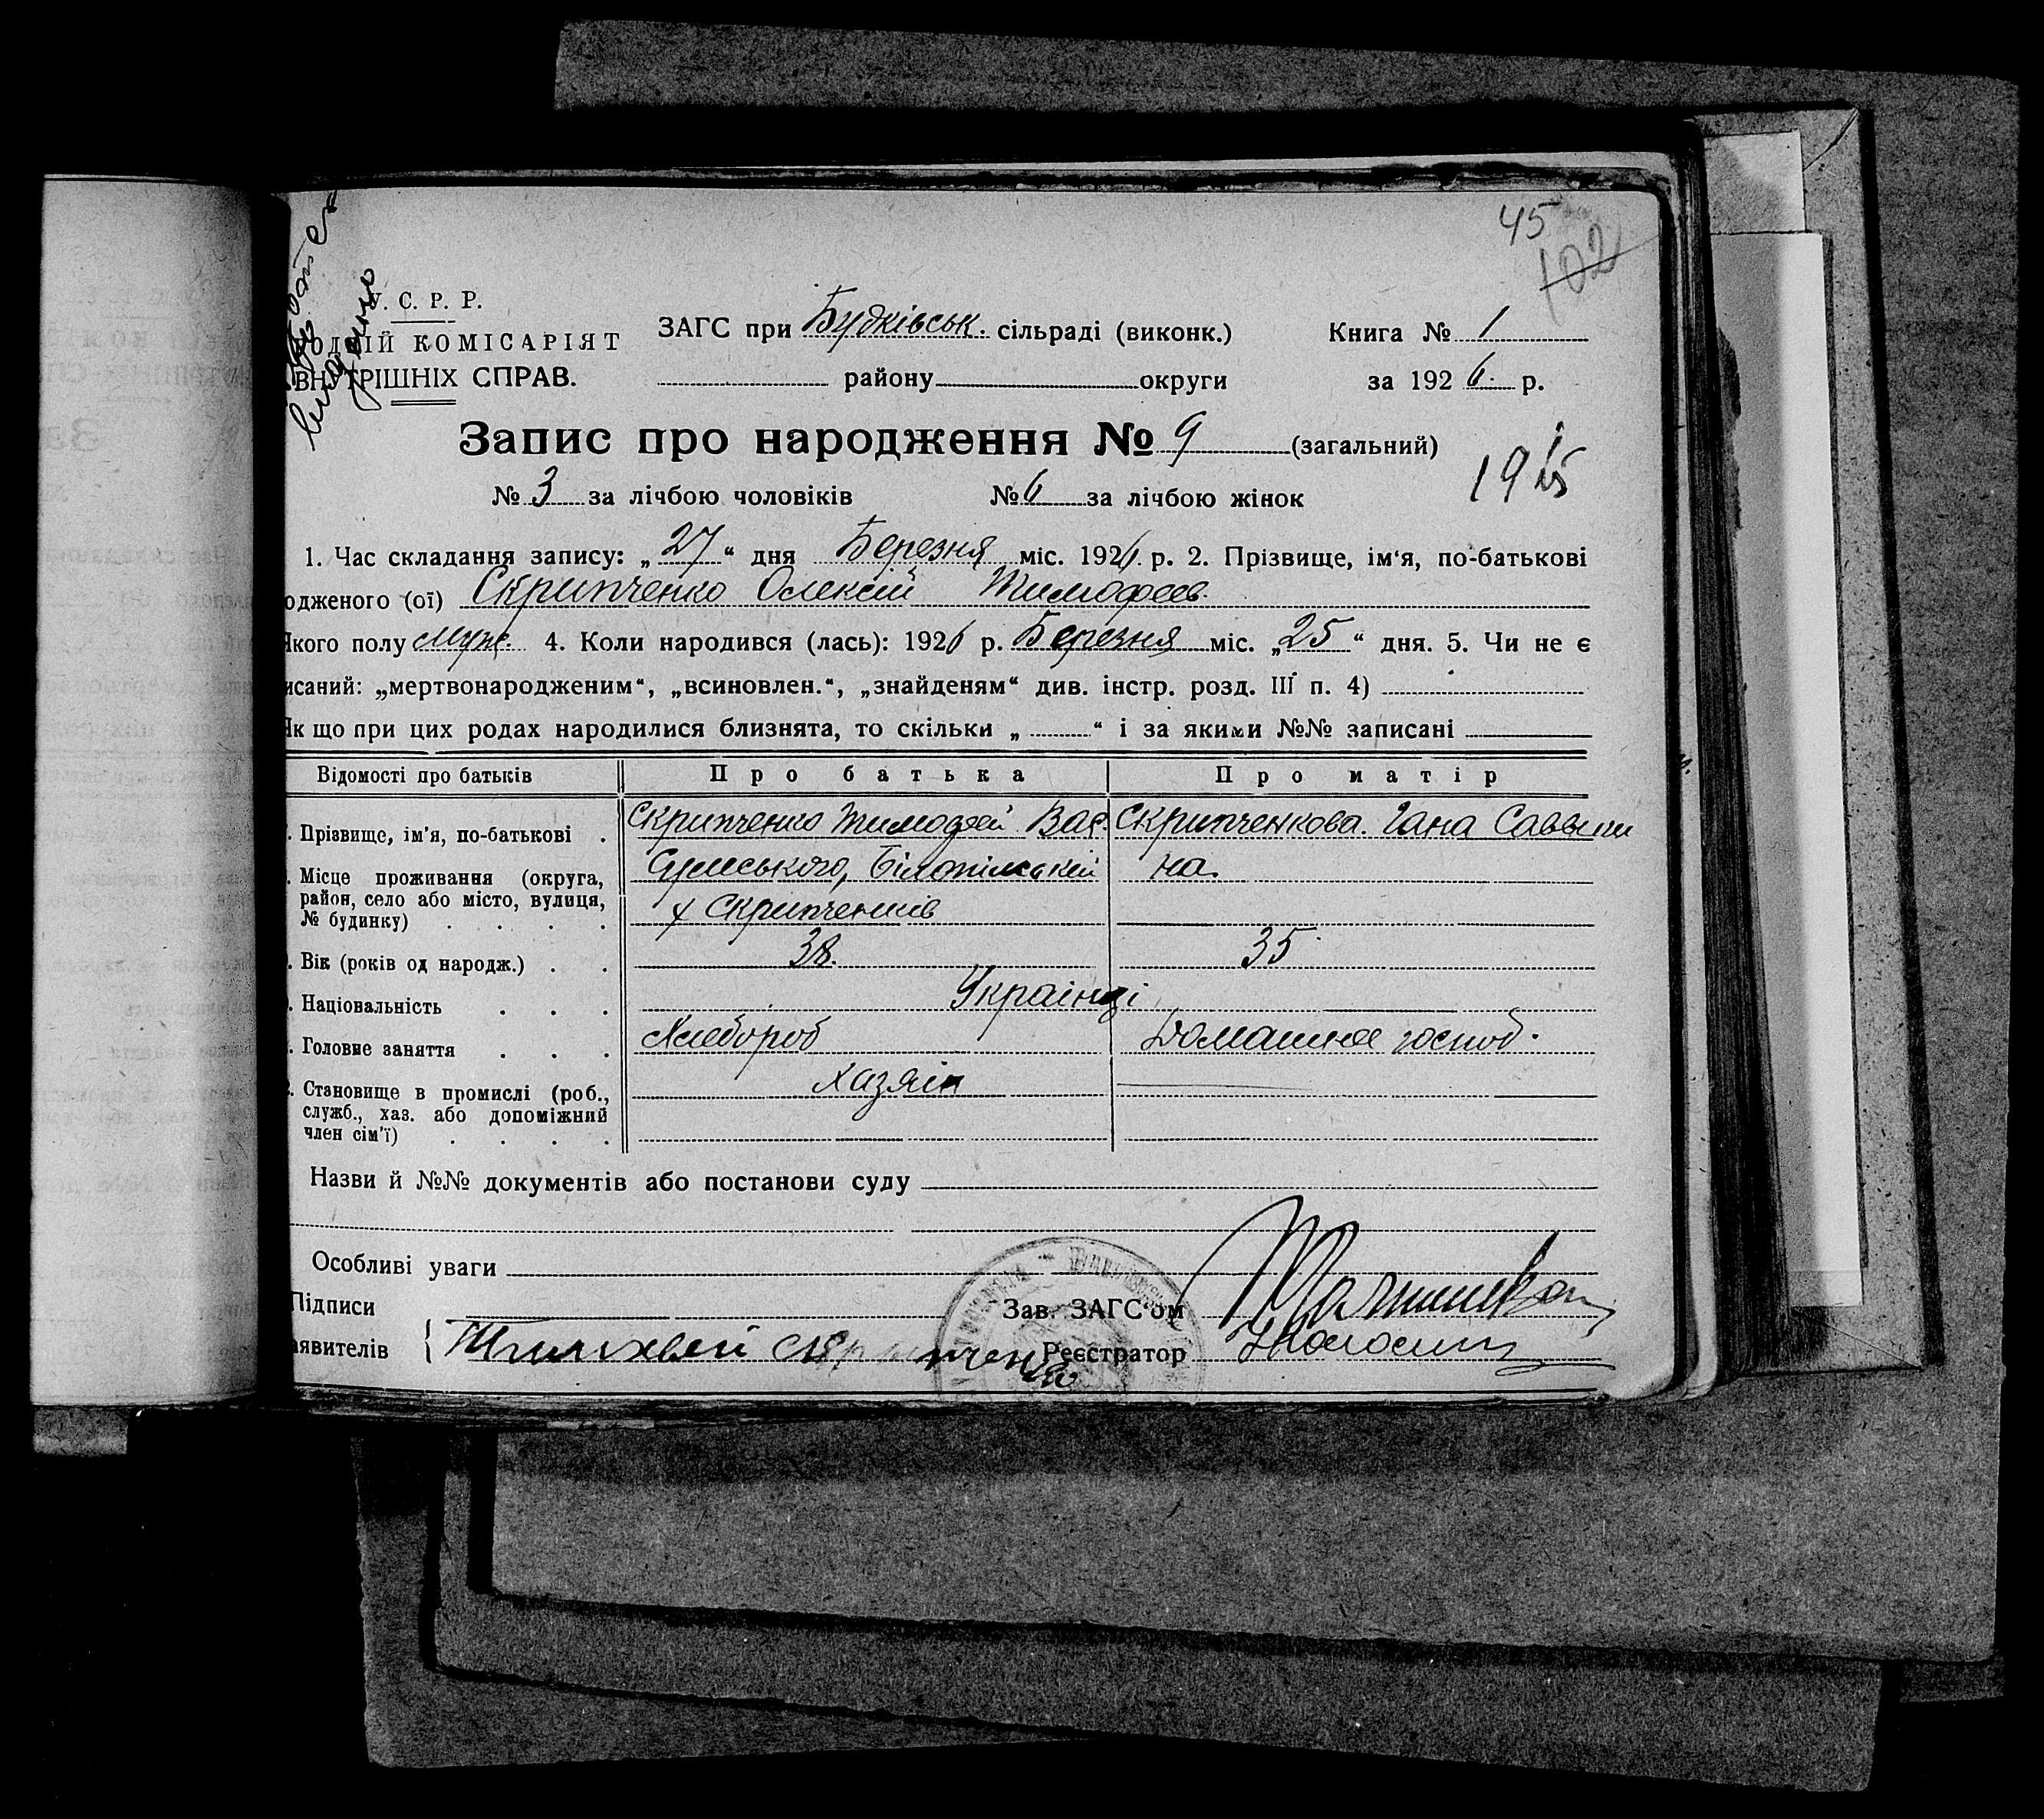 45
102
У. С. Р. Р.
ОДНІЙ КОМІСАРІЯТ
ВНУТРІШНІХ СПРАВ.
ЗАГС при Будківськ. сільраді (виконк.)
Книга № 1
району округи
за 1926 р.
Запис про народження № 9 (загальний)
№ 3 за лічбою чоловіків № 6 за лічбою жінок
1. Час складання запису: „27“ дня Березня міс. 1926 р. 2. Прізвище, ім‘я, по-батькові
одженого (ої) Скрипченко Олексій Тимофеев.
Якого полу муж. 4. Коли народився (лась): 1926 р. Березня міс. „25“ дня. 5. Чи не є
исаний: „мертвонародженим“, „всиновлен.“, „знайденям“ див. інстр. розд. III п. 4)
Як що при цих родах народилися близнята, то скільки „ “ і за якими №№ записані
Відомості про батьків Про батька Про матір
Прізвище, ім’я, по-батькові . Скрипченко Тимофей Вас. Скрипченкова. Гана Саввиш
на.
Місце проживання (округа, район, село або місто, вулиця, № будинку) . . . . Сумського, Білопільскій
х Скрипченків
Вік (років од народж.) . . 38. 35
Національність . . . Українці
Головне заняття . . . Хлебороб Домашнее господ.
Становище в промислі (роб., служб., хаз. або допоміжний член сім’ї) . . . . Хазяін
Назви й №№ документів або постанови суду
Особливі уваги
Підписи
аявителів { Тимохвей скрипченко
Зав. ЗАГС‘ом
Реєстратор